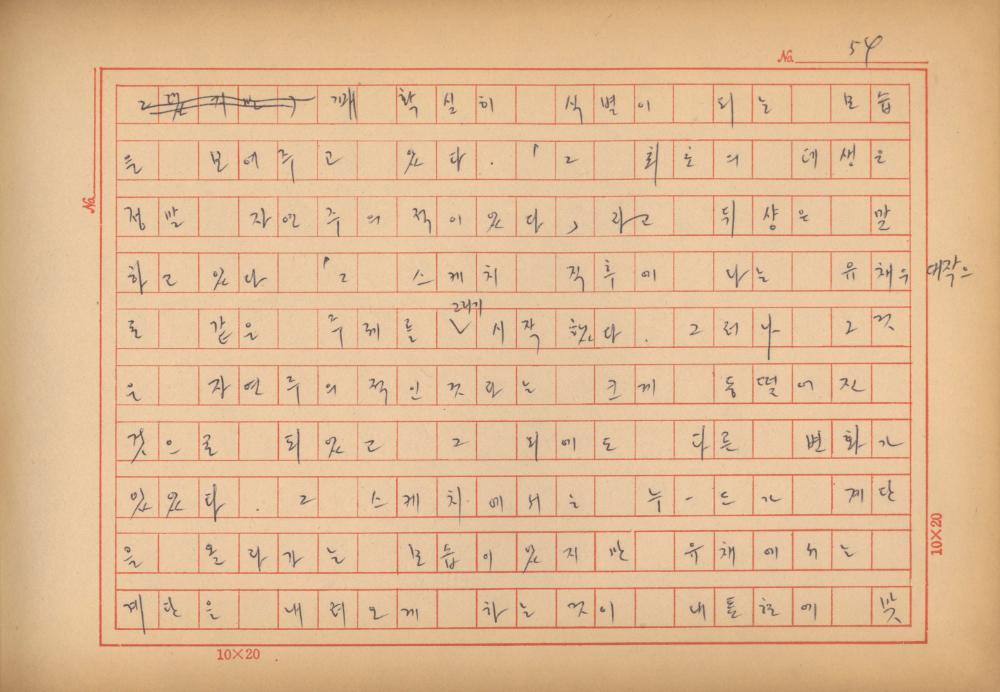 No. 54
꽤 확실히 식별이 되는 모습
을 보여주고 있다. 「그 최초의 데생은
정말 자연주의적이었다」라고 뒤샹은 말
하고 있다 「그 스케치 직후에 나는 유채 대작으
로 같은 주제를 그리기 시작했다. 그러나 그것
은 자연주의적인것과는 크게 동떨어진
것으로 되었고 그 외에도 다른 변화가
있었다. 그 스케치에서는 누-드가 계단
을 올라가는 모습이었지만 유채에서는
계단을 내려오게 하는 것이 내 표현에 맞
No.
10×20
10×20